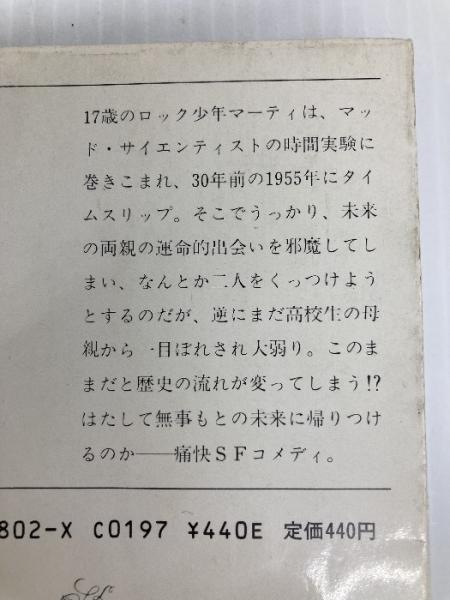 17歳のロック少年マーティは、マッ
ド・サイエンティストの時間実験に
巻きこまれ、30年前の1955年にタイ
ムスリップ。そこでうっかり、未来
の両親の運命的出会いを邪魔してし
まい、なんとか二人をくっつけよう
とするのだが、逆にまだ高校生の母
親から一目ぼれされ大弱り。このま
まだと歴史の流れが変ってしまう!?
はたして無事もとの未来に帰りつけ
るのか──痛快SFコメディ。
802-X C0197 ¥440E 定価440円